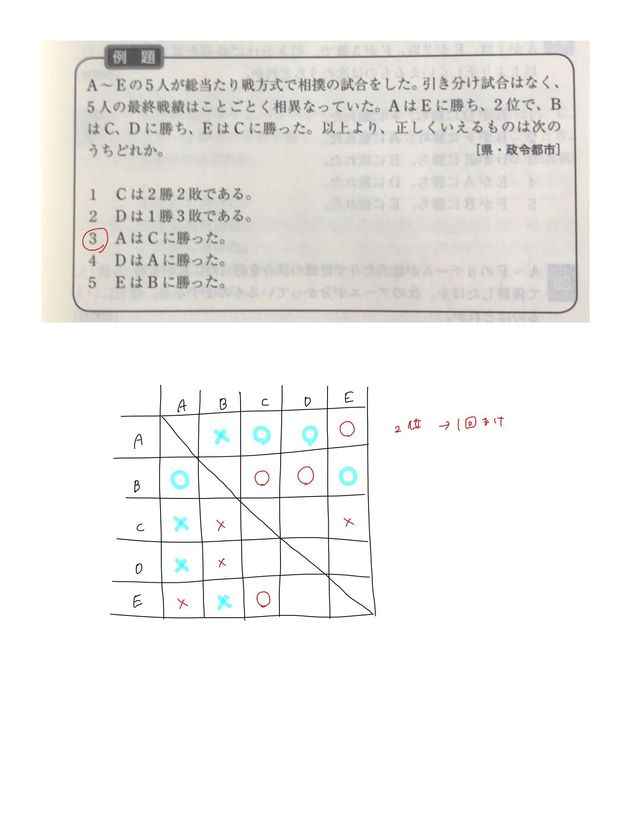 例題
A～Eの5人が総当たり戦方式で相撲の試合をした。引き分け試合はなく、
5人の最終戦績はことごとく相異なっていた。AはEに勝ち、2位で、B
はC、Dに勝ち、EはCに勝った。以上より、正しくいえるものは次の
うちどれか。 [県・政令都市]
1 Cは2勝2敗である。
2 Dは1勝3敗である。
3 AはCに勝った。
4 DはAに勝った。
5 EはBに勝った。
A B C D E
A × ○ ○ ○ 2位 →1回まけ
B ○ ○ ○ ○
C × × ×
D × ×
E × × ○